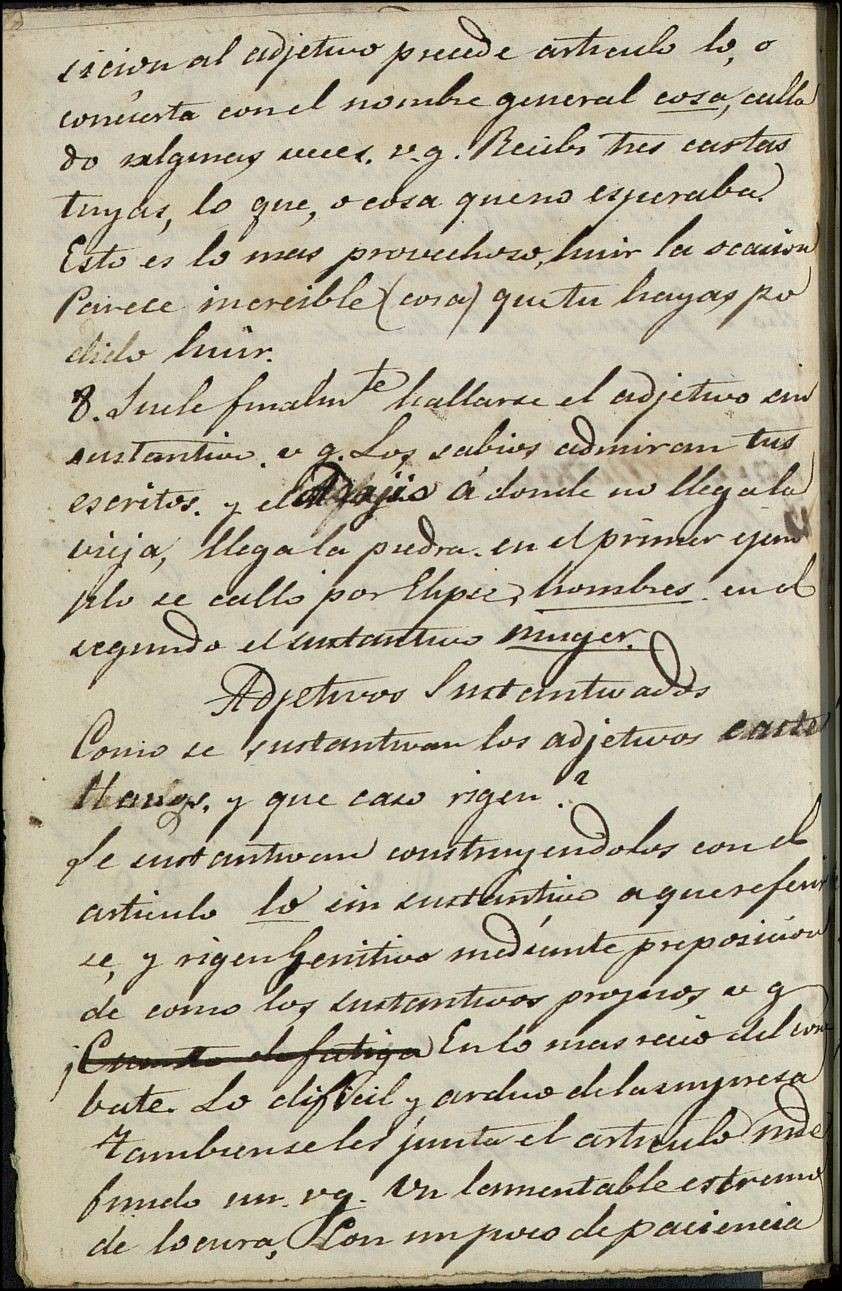 sicion al adjetivo precede articulo lo, o
concierta con el nombre general cosa, calla
do algunas veces. v.g. Recibi tres cartas
tuyas, lo que, o cosa que no esperaba.
Esto es lo mas provechoso, huir la ocacion
Parece increible (cosa) que tu hayas po
dido huir.
8. Suele finalmte hallarse el adjetivo sin
sustantivo. v g. Los sabios admiran tus
escritos. y el á donde no llega la
vieja, llega la piedra. en el primer ejem
plo se calló por Elipsis, hombres. en el
segundo el sustantivo muger.
Adjetivos Sustantivados
Como se sustantivan los adjetivos caste
llanos, y que caso rigen.?
Se sustantivan construyendolos con el
articulo lo sin sustantivo a que referir
se, y rigen Genitivo mediante preposicion
de como los sustantivos propios, v g
¡Cuanto de fatiga En lo mas recio del com
bate. Lo dificil y arduo de la empresa
Tambien se les junta el articulo inde
finido un. vg. Un lamentable estremo
de locura, Con un poco de paciencia